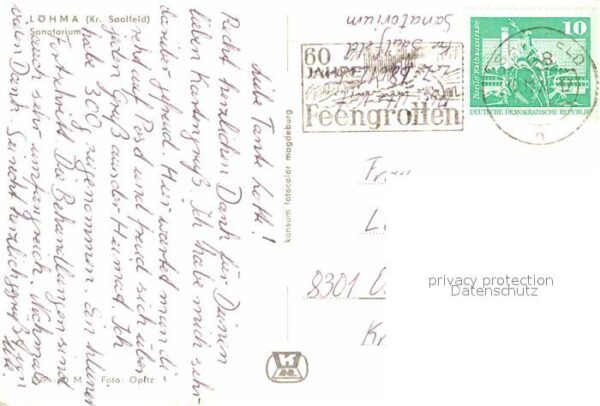 LÖHMA (Kr. Saalfeld)
Sanatorium
Liebe Tante Lotte!
Recht herzlichen Dank für Deinen
lieben Kartengruß. Ich habe mich sehr
darüber gefreut. Hier wartet man di-
rekt auf Post und freut sich über
jeden Gruß aus der Heimat. Ich
habe 300 g zugenommen. Ein kleiner
Fortschritt. Die Behandlungen sind
auch sehr umfangreich. Nochmals
vielen Dank. Sei recht herzlich gegrüßt von
M Foto: Opitz
konsum fotocolor magdeburg
Sanatorium
Saalfeld
60
JAHRE
Feengrotten
10
Berlin, Rathausstraße
DEUTSCHE DEMOKRATISCHE REPUBLIK
8301
privacy protection
Datenschutz